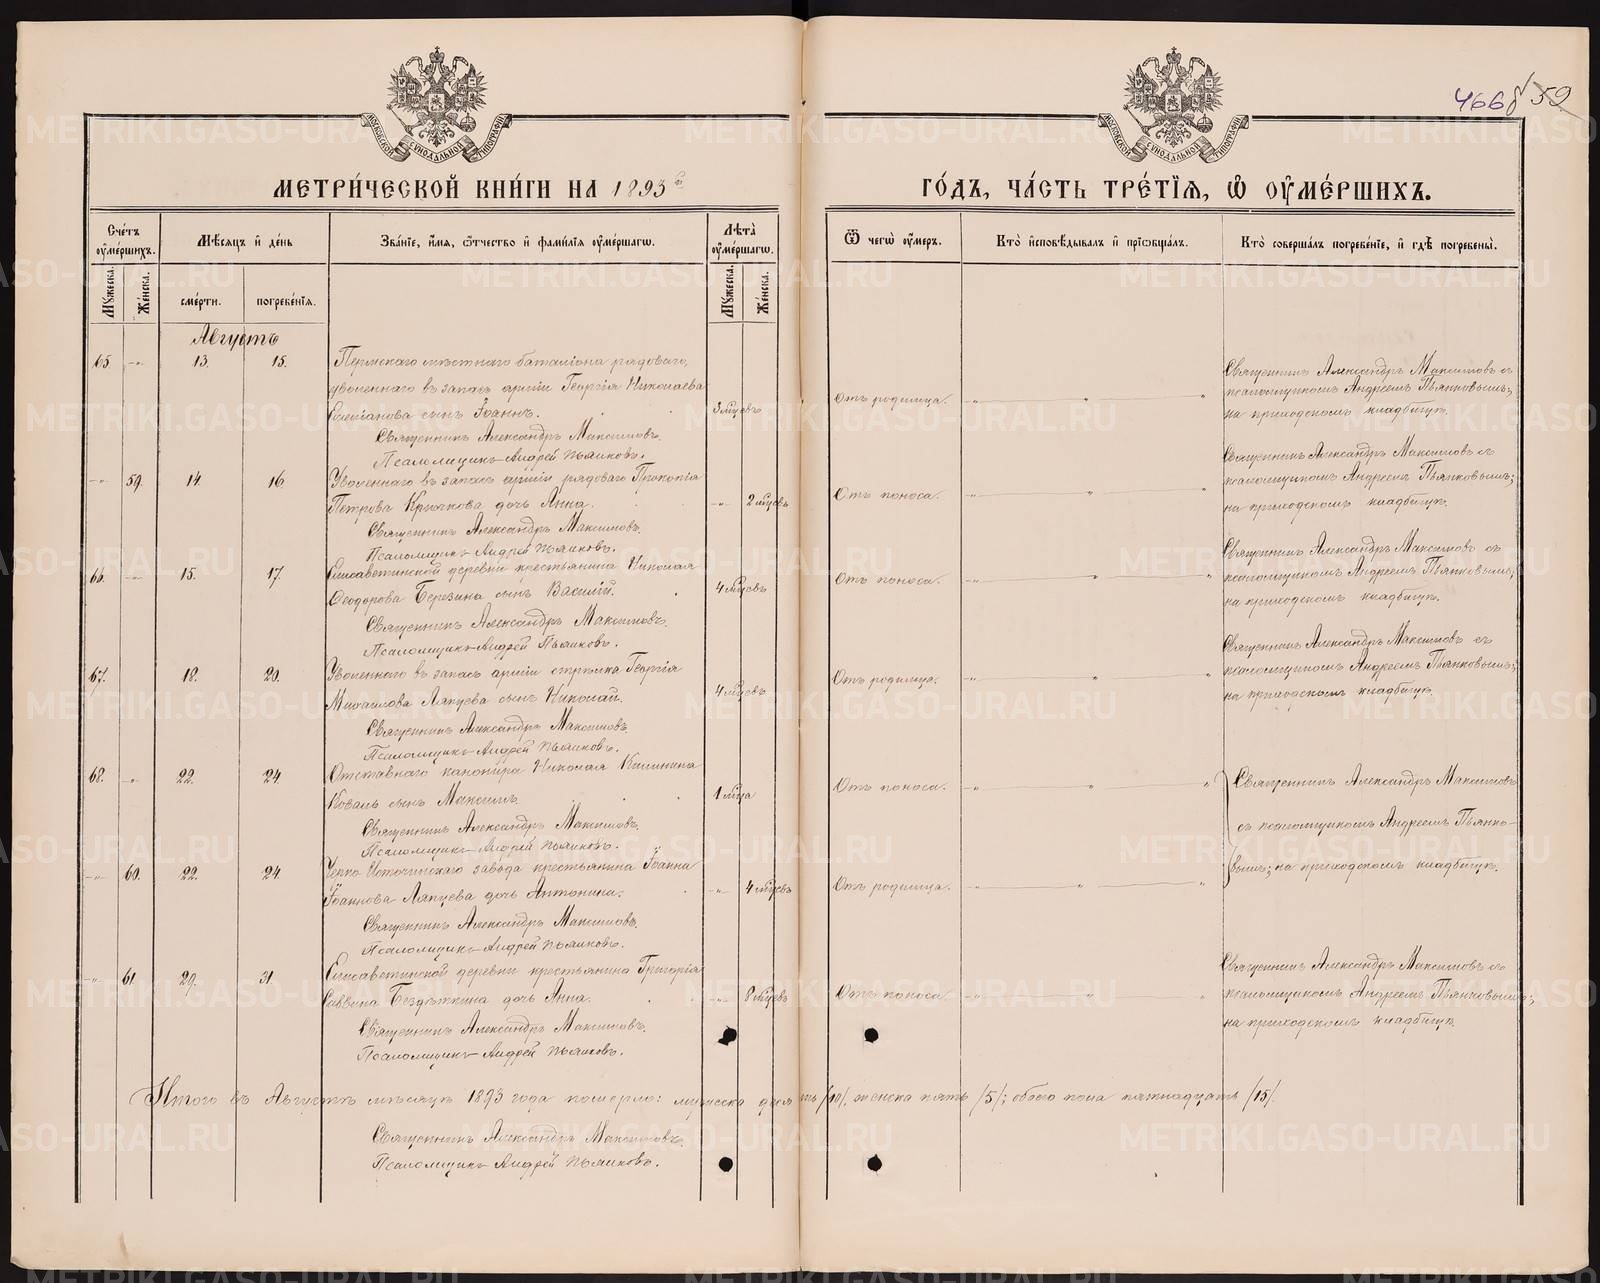 466 об 59
МЕТРИЧЕСКОЙ КНИГИ НА 1893й
ГОДЪ, ЧАСТЬ ТРЕТІЯ, Ѿ ОУМЕРШИХЪ.
МОСКОВСКОЙ СѴНОДАЛЬНОЙ ТИПОГРАФІИ
МОСКОВСКОЙ СѴНОДАЛЬНОЙ ТИПОГРАФІИ
Счетъ оумершихъ.
Мѣсяцъ и день
Званіе, имя, отчество и фамилія оумершагѡ.
Лѣта оумершагѡ.
Ѿ чегѡ оумеръ.
Кто исповѣдывалъ и пріобщалъ.
Кто совершалъ погребеніе, и гдѣ погребены.
Мужеска.
Женска.
смерти.
погребенія.
Мужеска.
Женска.
Августъ
65. -„- 13. 15.
Пермскаго мѣстнаго баталіона рядоваго,
уволеннаго въ запасъ арміи Георгія Николаева
сынъ Іоаннъ.
3 мцевъ
Отъ родимца. -„- „ „
Священникъ Александръ Максимовъ съ
псаломщикомъ Андреемъ Пьянковымъ;
на приходскомъ кладбищѣ.
Священникъ Александръ Максимовъ.
Псаломщикъ Андрей Пьянковъ.
-„- 59. 14. 16
Уволеннаго въ запасъ арміи рядоваго Прокопія
Петрова Крючкова дочь Анна.
-„- 2 мцевъ
Отъ поноса. -„- „
Священникъ Александръ Максимовъ съ
псаломщикомъ Андреемъ Пьянковымъ;
на приходскомъ кладбищѣ.
Священникъ Александръ Максимовъ.
Псаломщикъ Андрей Пьянковъ.
66. -„- 15. 17.
Елисаветинской деревни крестьянина Николая
Ѳеодорова Березина сынъ Василій.
4 мцевъ
Отъ поноса. -„- „ „
Священникъ Александръ Максимовъ съ
псаломщикомъ Андреемъ Пьянковымъ;
на приходскомъ кладбищѣ.
Священникъ Александръ Максимовъ.
Псаломщикъ Андрей Пьянковъ.
67. 18. 20.
Уволеннаго въ запасъ арміи стрѣлка Георгія
Михаилова Ляпцева сынъ Николай.
4 мцевъ
Отъ родимца. -„- „ „
Священникъ Александръ Максимовъ съ
псаломщикомъ Андреемъ Пьянковымъ;
на приходскомъ кладбищѣ.
Священникъ Александръ Максимовъ.
Псаломщикъ Андрей Пьянковъ.
68. -„- 22. 24
Отставнаго канонира Николая Калинина
Коваль сынъ Максимъ.
1 мца
Отъ поноса. -„- „ „
Священникъ Александръ Максимовъ
съ псаломщикомъ Андреемъ Пьянко-
вымъ; на приходскомъ кладбищѣ.
Священникъ Александръ Максимовъ.
Псаломщикъ Андрей Пьянковъ.
-„- 60. 22. 24.
Верхъ-Исетскаго завода крестьянина Іоанна
Іоаннова Ляпцева дочь Антонина.
-„- 4 мцевъ
Отъ родимца. -„- „ „
Священникъ Александръ Максимовъ.
Псаломщикъ Андрей Пьянковъ.
-„- 61. 29. 31.
Елисаветинской деревни крестьянина Григорія
Саввина дочь Анна.
-„- 8 мцевъ
Отъ поноса. -„- „ „
Священникъ Александръ Максимовъ съ
псаломщикомъ Андреемъ Пьянковымъ;
на приходскомъ кладбищѣ.
Священникъ Александръ Максимовъ.
Псаломщикъ Андрей Пьянковъ.
Итого въ Августѣ мѣсяцѣ 1893 года померло: мужеска десять /10/, женска пять /5/; обоего пола пятнадцать /15/.
Священникъ Александръ Максимовъ.
Псаломщикъ Андрей Пьянковъ.
METRIKI.GASO-URAL.RU